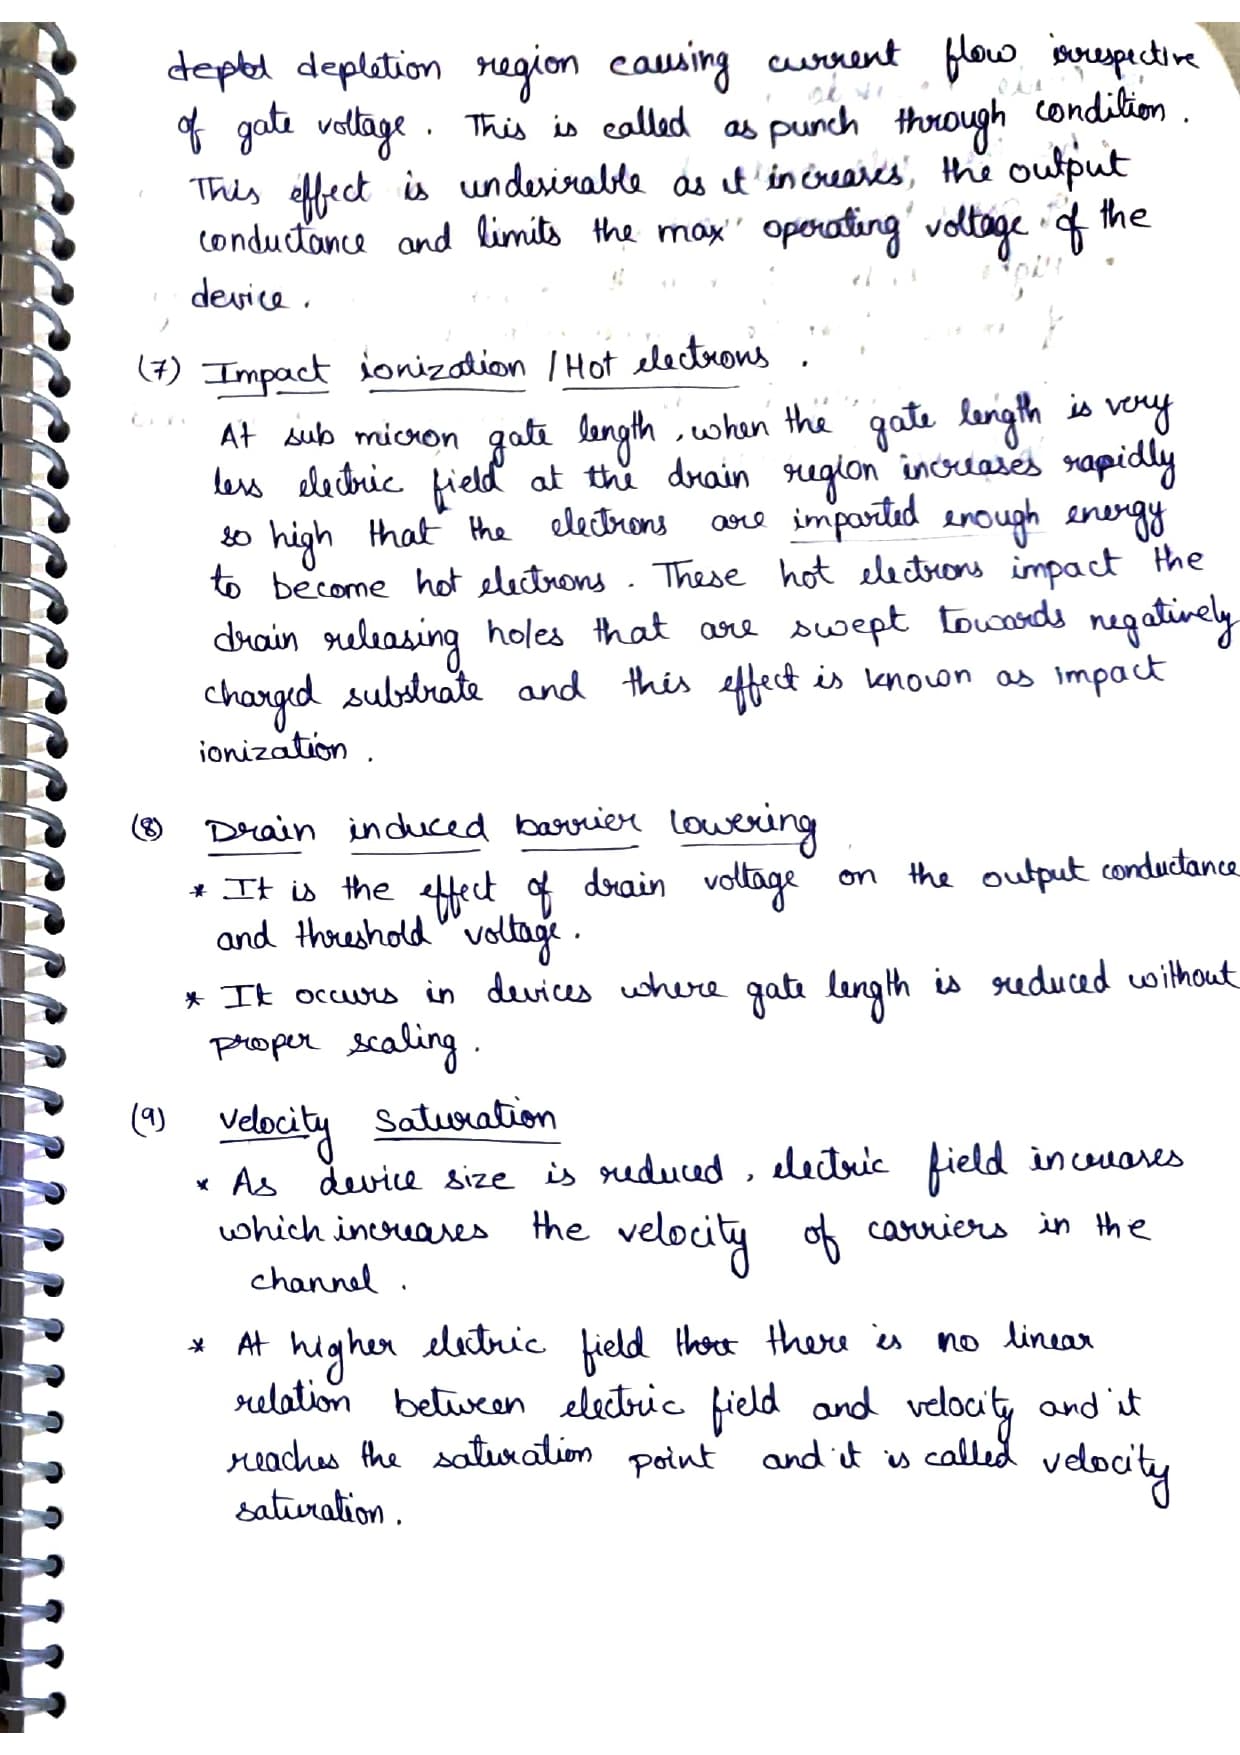 depletion region causing current flow irrespective
of gate voltage. This is called as punch through condition.
This effect is undesirable as it increases, the output
conductance and limits the max operating voltage of the
device.
(7) Impact ionization / Hot electrons.
At sub micron gate length, when the gate length is very
less electric field at the drain region increases rapidly
so high that the electrons are imparted enough energy
to become hot electrons. These hot electrons impact the
drain releasing holes that are swept towards negatively
charged substrate and this effect is known as impact
ionization.
(8) Drain induced barrier lowering
* It is the effect of drain voltage on the output conductance
and threshold voltage.
* It occurs in devices where gate length is reduced without
proper scaling.
(9) Velocity Saturation
* As device size is reduced, electric field increases
which increases the velocity of carriers in the
channel.
* At higher electric field there is no linear
relation between electric field and velocity and it
reaches the saturation point and it is called velocity
saturation.